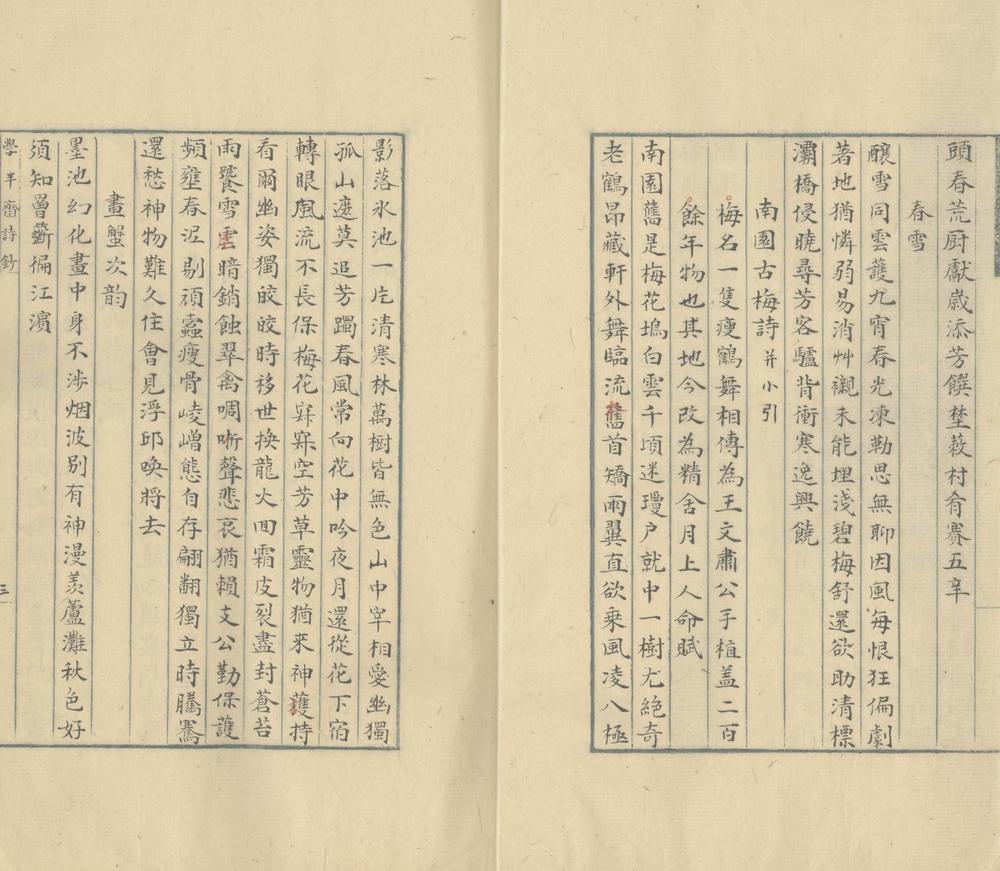 頭春荒厨獻歲添芳饌埜蔌村肴賽五辛
春雪
釀雪同雲護九宵春光凍勒思無聊因風每恨狂偏劇
著地猶憐弱易消艸襯未能埋淺碧梅舒還欲助清標
灞橋侵曉尋芳客驢背衝寒逸興饒
南園古梅詩并小引
梅名一隻瘦鶴舞相傳為王文肅公手植盖二百
餘年物也其地今改為精舍月上人命賦
南園舊是梅花塢白雲千頃迷瓊户就中一樹尤絶奇
老鶴昂藏軒外舞臨流舊首矯雨翼直欲乘風凌八極
影落氷池一片清寒林萬樹皆無色山中宰相愛幽獨
孤山遮莫追芳躅春風常向花中吟夜月還從花下宿
轉眼風流不長保梅花寂寂空芳草靈物猶来神護持
看爾幽姿獨皎皎時移世換龍火囬霜皮裂盡封蒼苔
雨饕雪雲暗銷蝕翠禽啁哳聲悲哀猶賴支公勤保護
頻壅春泥剔頑蠹瘦骨崚嶒態自存翩翻獨立時騰騫
還愁神物難久住會見浮邱喚将去
畫蟹次韵
墨池幻化畫中身不涉烟波别有神漫羡蘆灘秋色好
須知曾籪徧江濱
學半齋詩鈔
三